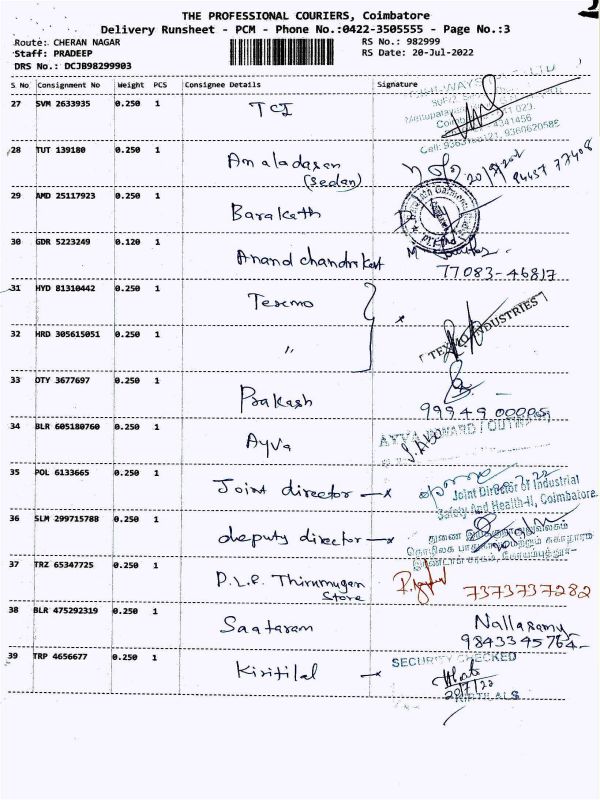 THE PROFESSIONAL COURIERS, Coimbatore
Delivery Runsheet - PCM - Phone No.:0422-3505555 - Page No.:3
Route: CHERAN NAGAR RS No.: 982999
Staff: PRADEEP RS Date: 20-Jul-2022
DRS No.: DCJB98299903
S No Consignment No Weight PCS Consignee Details Signature
27 SVM 2633935 0.250 1 TCI
28 TUT 139180 0.250 1 Amaladasan
(Sedan) 20/7/2022 94437 77408
29 AMD 25117923 0.250 1 Barakath
30 GDR 5223249 0.120 1 Anand chandrikat
77083-46817
31 HYD 81310442 0.250 1 Texmo
TEXMO INDUSTRIES
32 HRD 305615051 0.250 1 "
33 OTY 3677697 0.250 1 Prakash
99949 00005
34 BLR 605180760 0.250 1 Ayva
35 POL 6133665 0.250 1 Joint director
Joint Director of Industrial
Safety And Health-II, Coimbatore.
36 SLM 299715788 0.250 1 deputy director
37 TRZ 65347725 0.250 1 P.L.R. Thirumugan
Store 7373737282
38 BLR 475292319 0.250 1 Saataram Nallasamy
9843345764
39 TRP 4656677 0.250 1 Kiritilal
SECURITY CHECKED
20/7/22
KIRTILALS